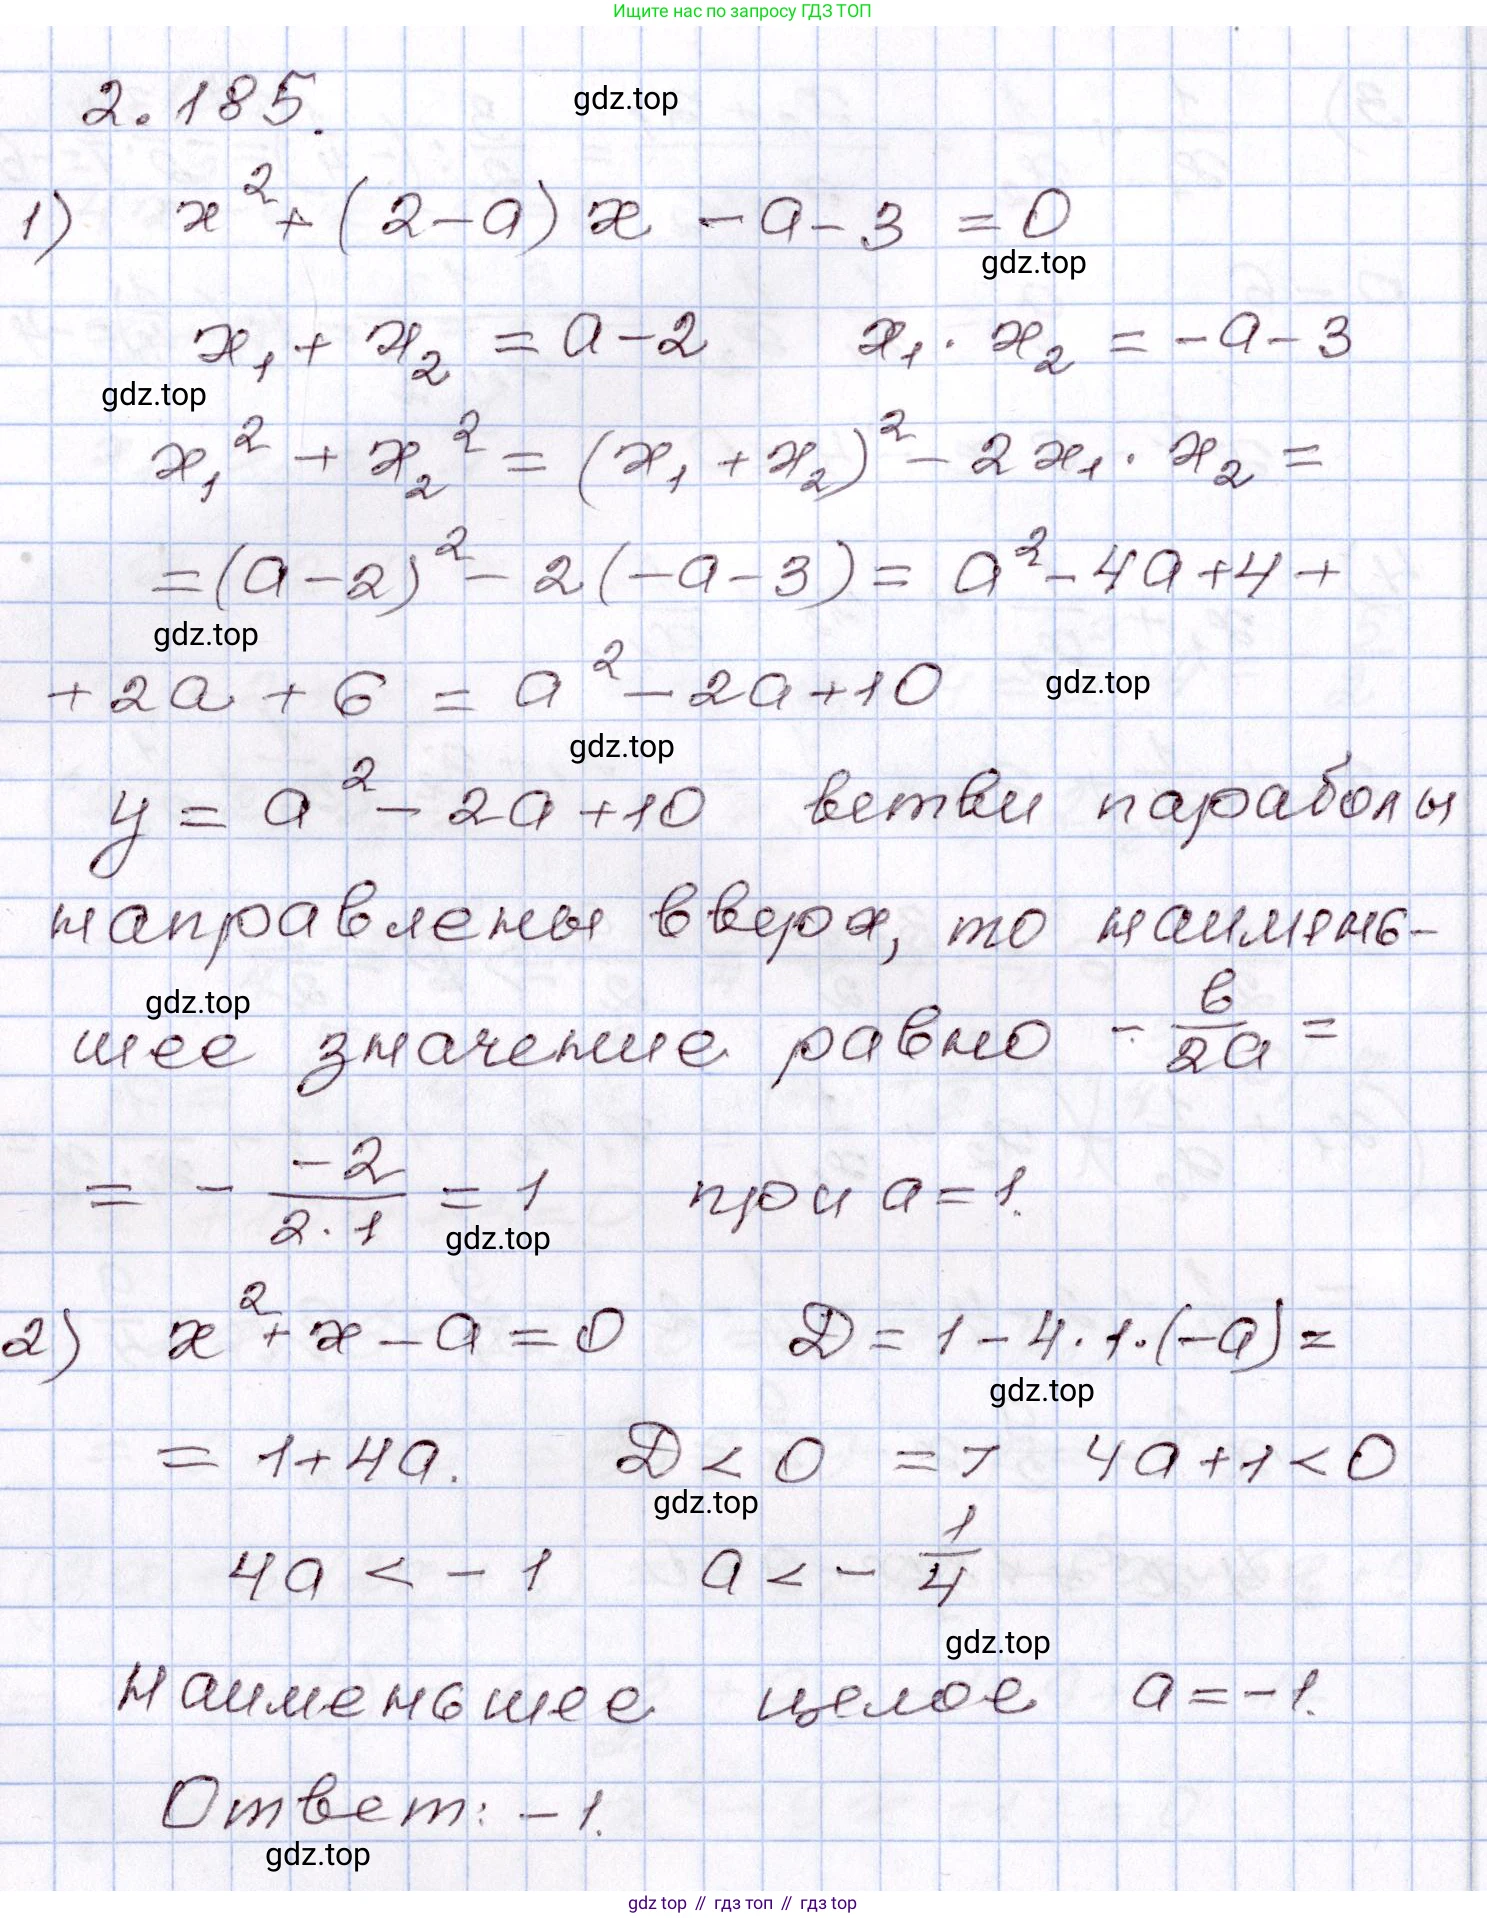 Ищите нас по запросу ГДЗ ТОП
2.185.
gdz.top
1) x² + (2 - a) x - a - 3 = 0
gdz.top
x₁ + x₂ = a - 2 x₁ · x₂ = - a - 3
gdz.top
x₁² + x₂² = (x₁ + x₂)² - 2x₁ · x₂ =
= (a - 2)² - 2(-a - 3) = a² - 4a + 4 +
gdz.top
+ 2a + 6 = a² - 2a + 10
gdz.top
gdz.top
y = a² - 2a + 10 ветви параболы
направлены вверх, то наимень-
gdz.top
шее значение равно - b/2a =
= - -2/2·1 = 1 при a = 1.
gdz.top
2) x² + x - a = 0 D = 1 - 4·1·(-a) =
gdz.top
= 1 + 4a. D < 0 => 4a + 1 < 0
gdz.top
4a < - 1 a < - 1/4
gdz.top
наименьшее целое a = -1.
Ответ: -1.
gdz.top
gdz top // гдз топ // gdz top